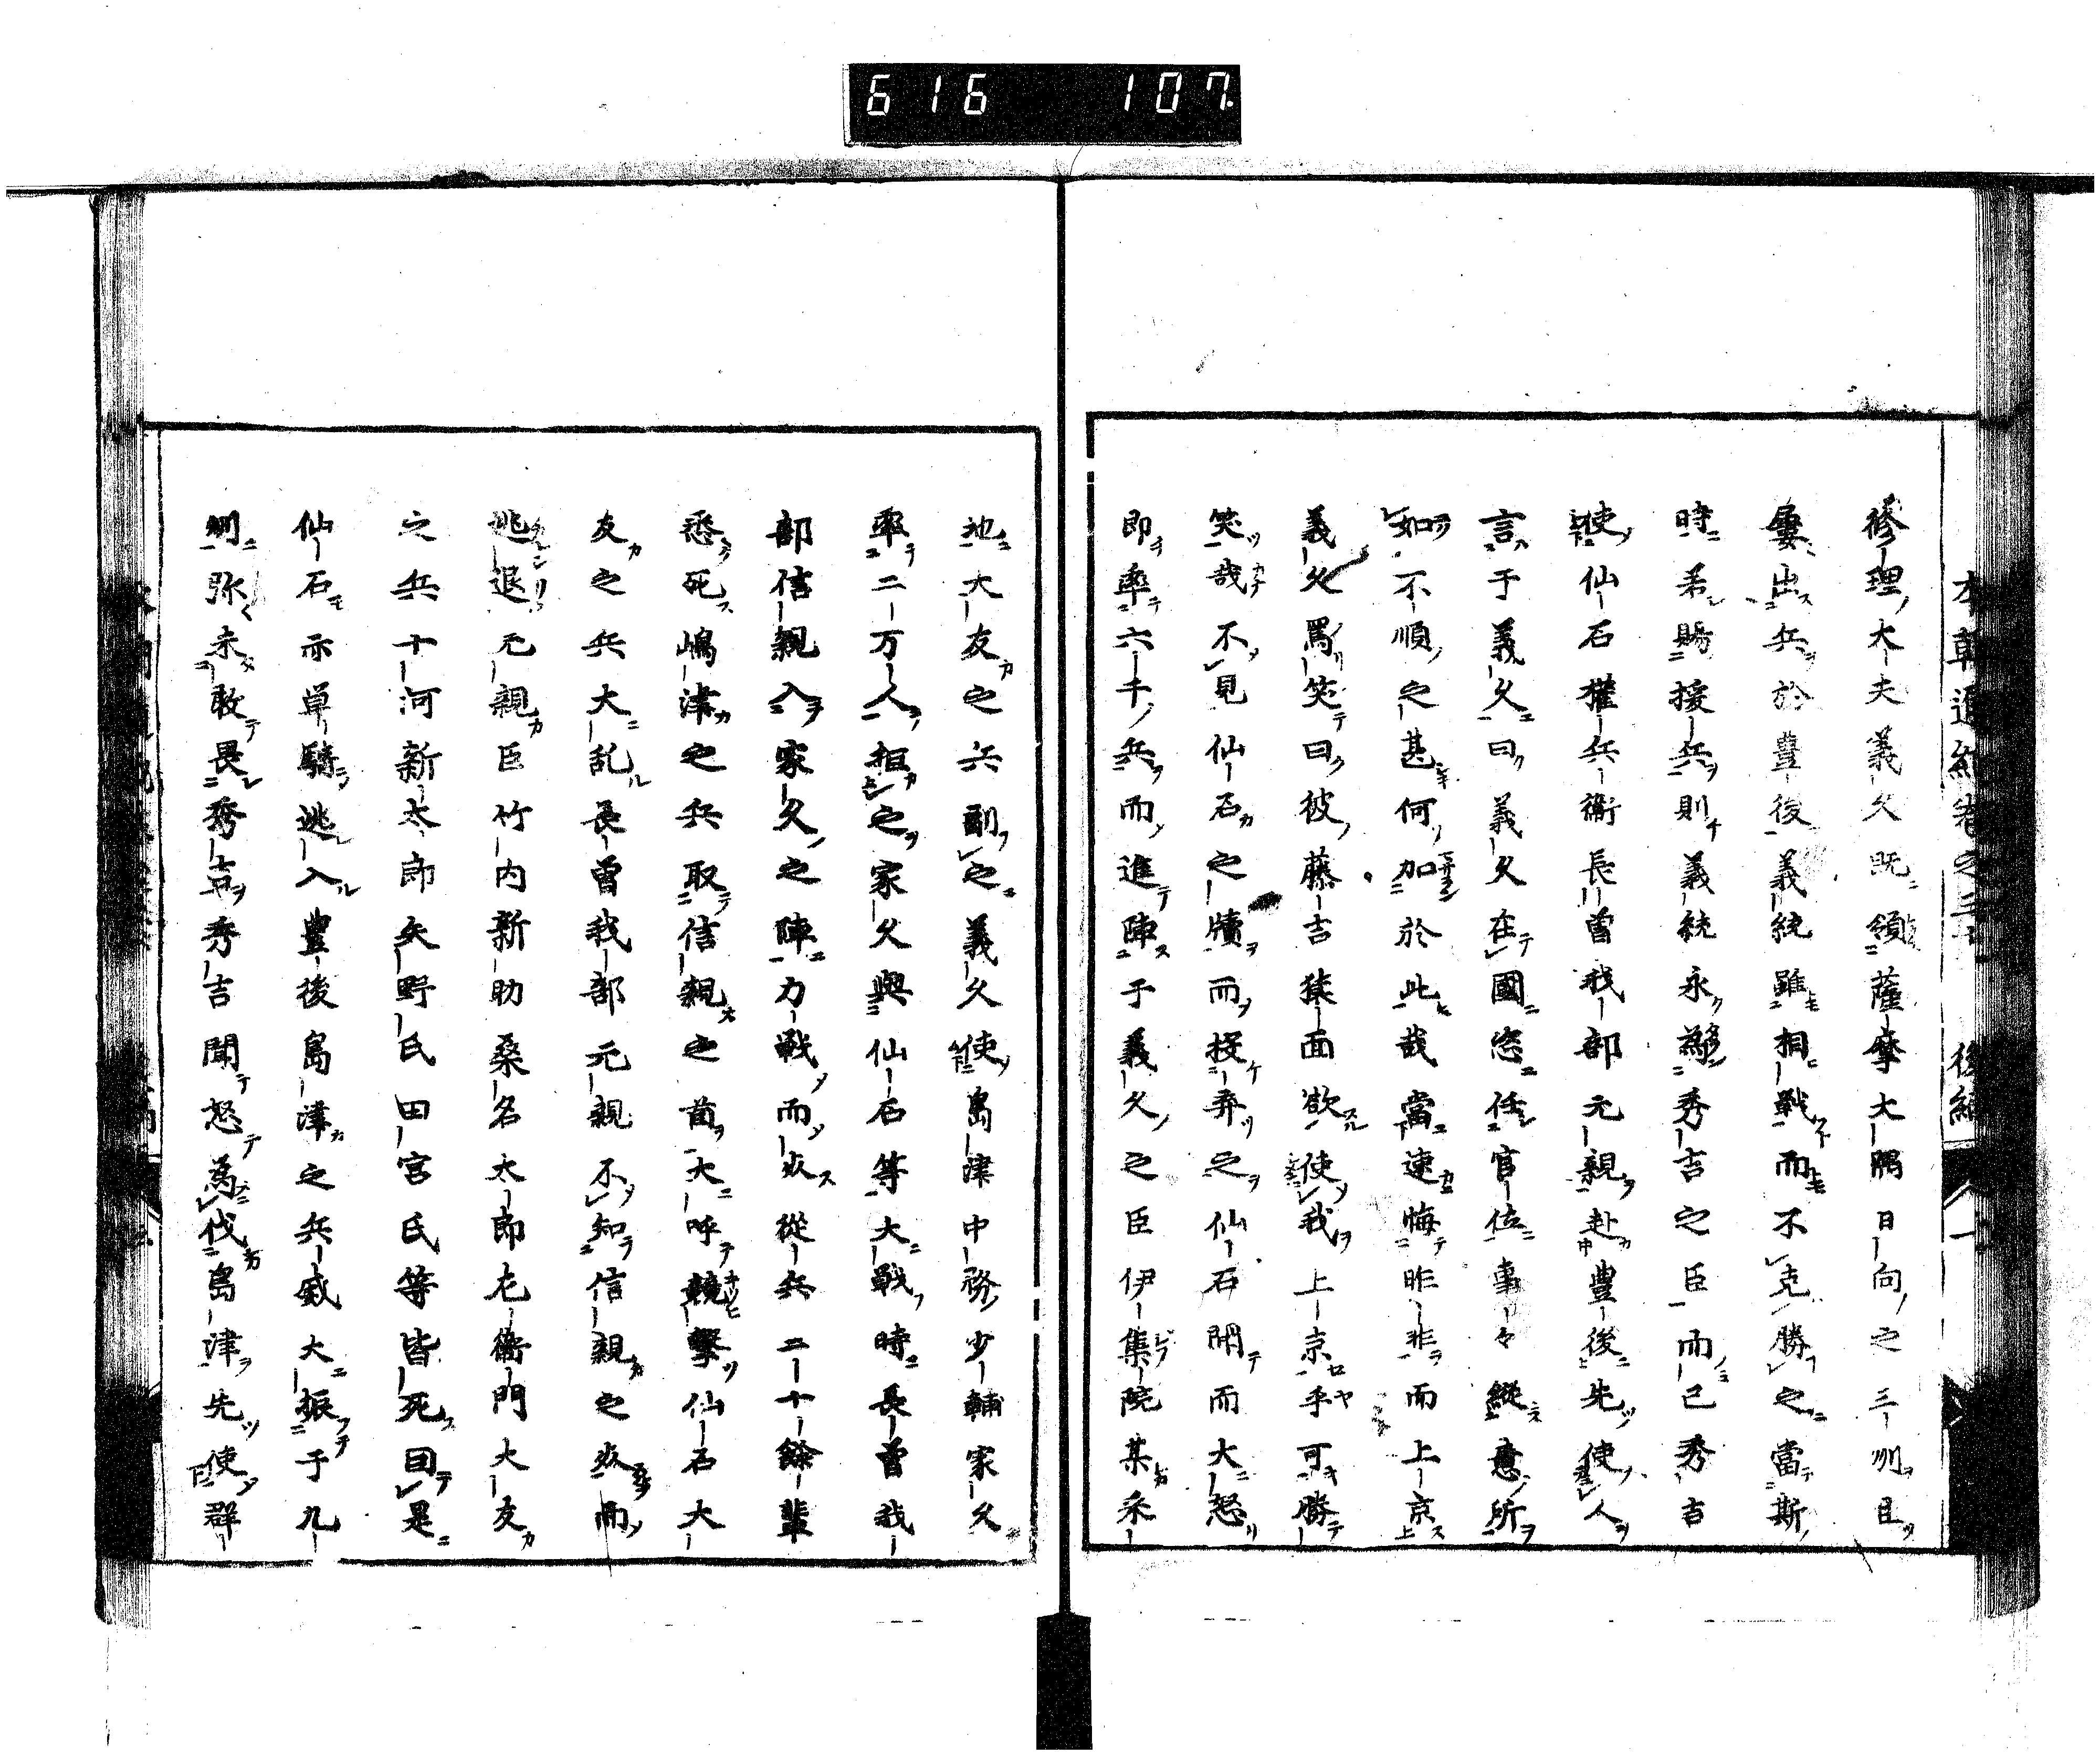 616 107.
本朝通紀巻之 後編
修理大夫義久既領薩摩大隅日向之三州且
屢出兵於豊後義統雖相戦而不克勝之當斯
時若賜援兵則義統永為秀吉之臣而已秀吉
使仙石權兵衛長曽我部元親赴豊後先使人
言于義久曰義久在國恣任官位事々縦意所
如不順之甚何加於此哉當速悔昨非而上京
義久罵笑曰彼藤吉猿面欲使我上京乎可勝
笑哉不見仙石之牘而投弃之仙石聞而大怒
即率六千兵而進陣于義久之臣伊集院某采
地大友之兵副之義久使島津中務少輔家久
率二万人拒之家久與仙石等大戰時長曽我
部信親入家久之陣力戰而死従兵二十餘輩
悉死嶋津之兵取信親之首大呼競撃仙石大
友之兵大乱長曽我部元親不知信親之死而
逃退元親臣竹内新助桑名太郎左衛門大友
之兵十河新太郎矢野氏田宮氏等皆死曰是
仙石亦単騎逃入豊後島津之兵威大振于九
州弥未敢畏秀吉秀吉聞怒為伐島津先使群